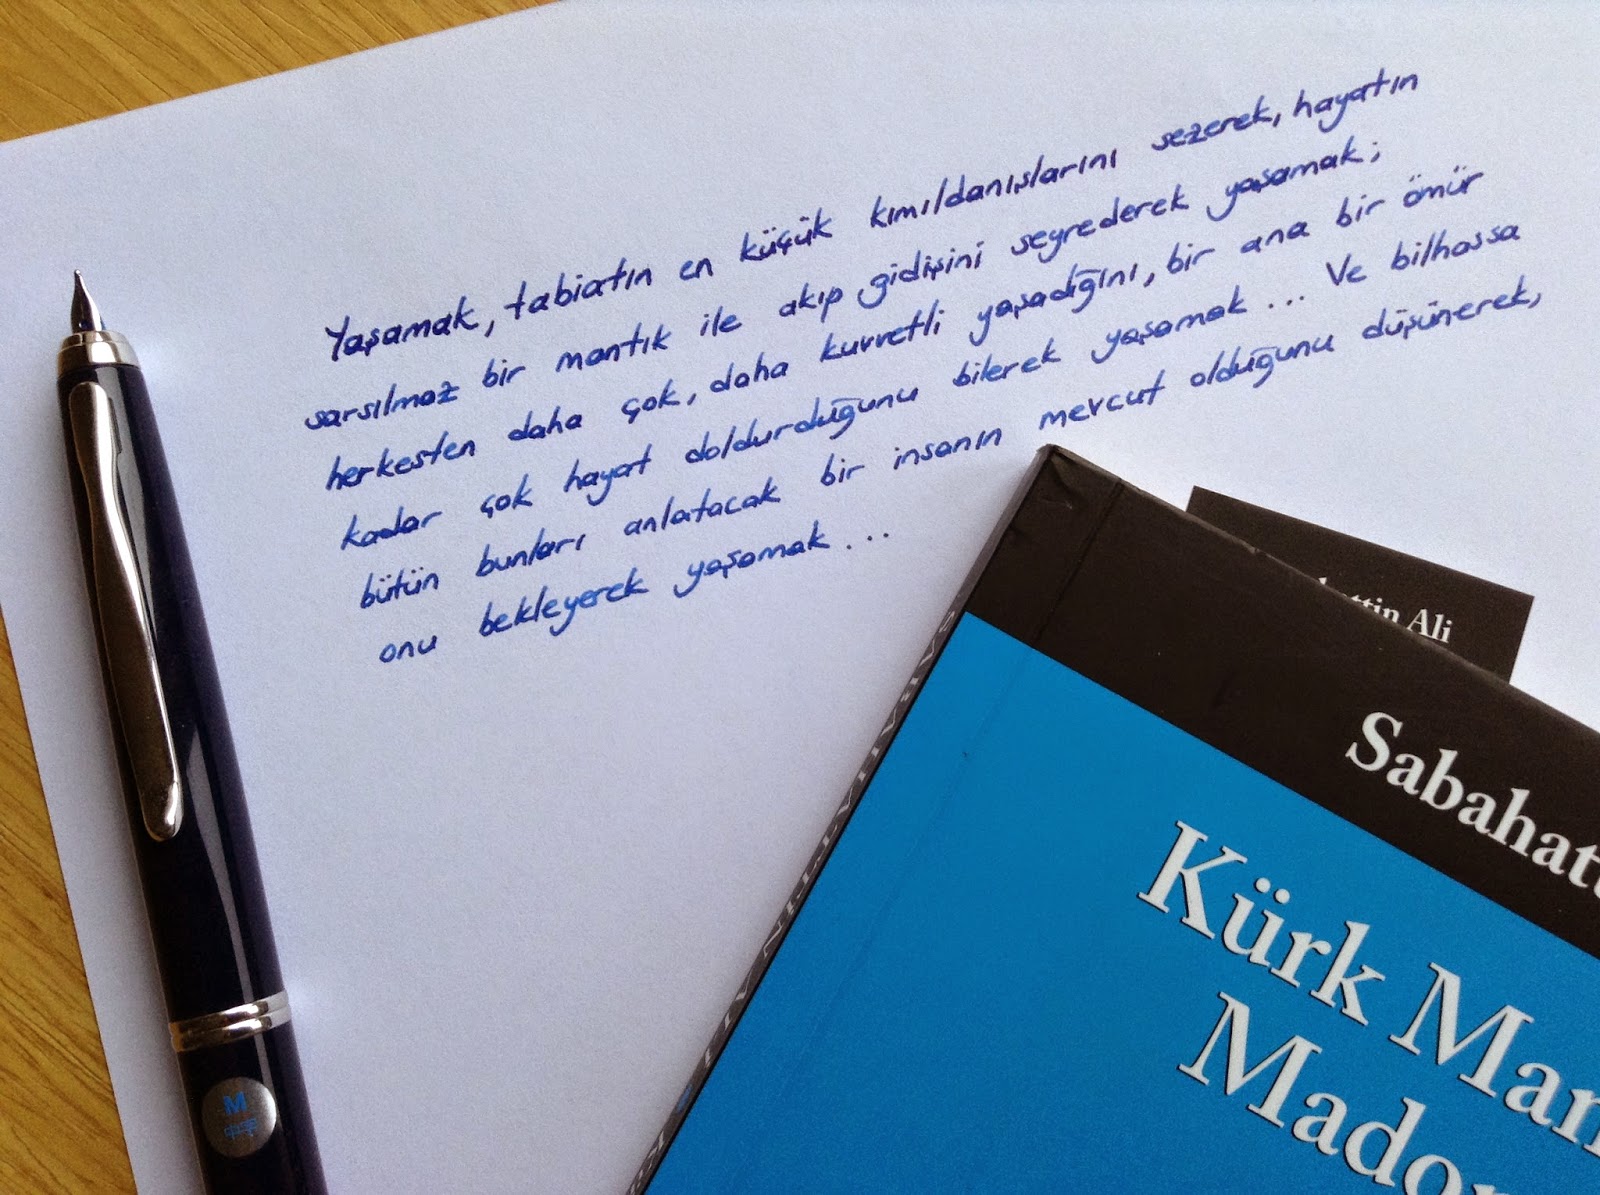 Yaşamak, tabiatın en küçük kımıldanışlarını sezerek, hayatın
sarsılmaz bir mantık ile akıp gidişini seyrederek yaşamak;
herkesten daha çok, daha kuvvetli yaşadığını, bir ana bir ömür
kadar çok hayat doldurduğunu bilerek yaşamak... Ve bilhassa
bütün bunları anlatacak bir insanın mevcut olduğunu düşünerek,
onu bekleyerek yaşamak...
Ali
Sabahatt
Kürk Man
Mado
SABAHATTİN ALİ
M
中字